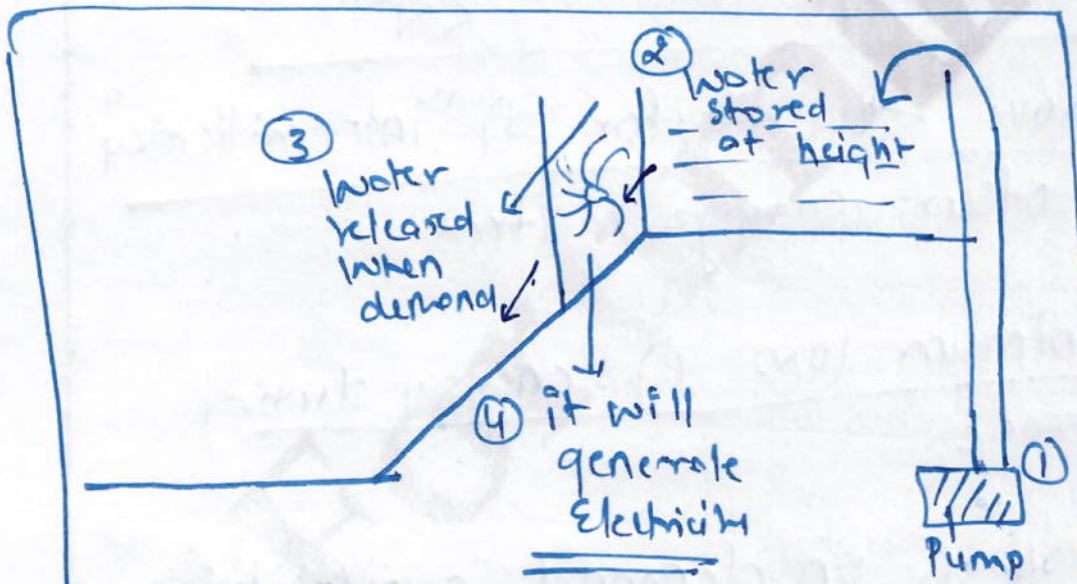 ①
Pump
②
Water
stored
at height
③
Water
released
when
demand
④ it will
generate
Electricity